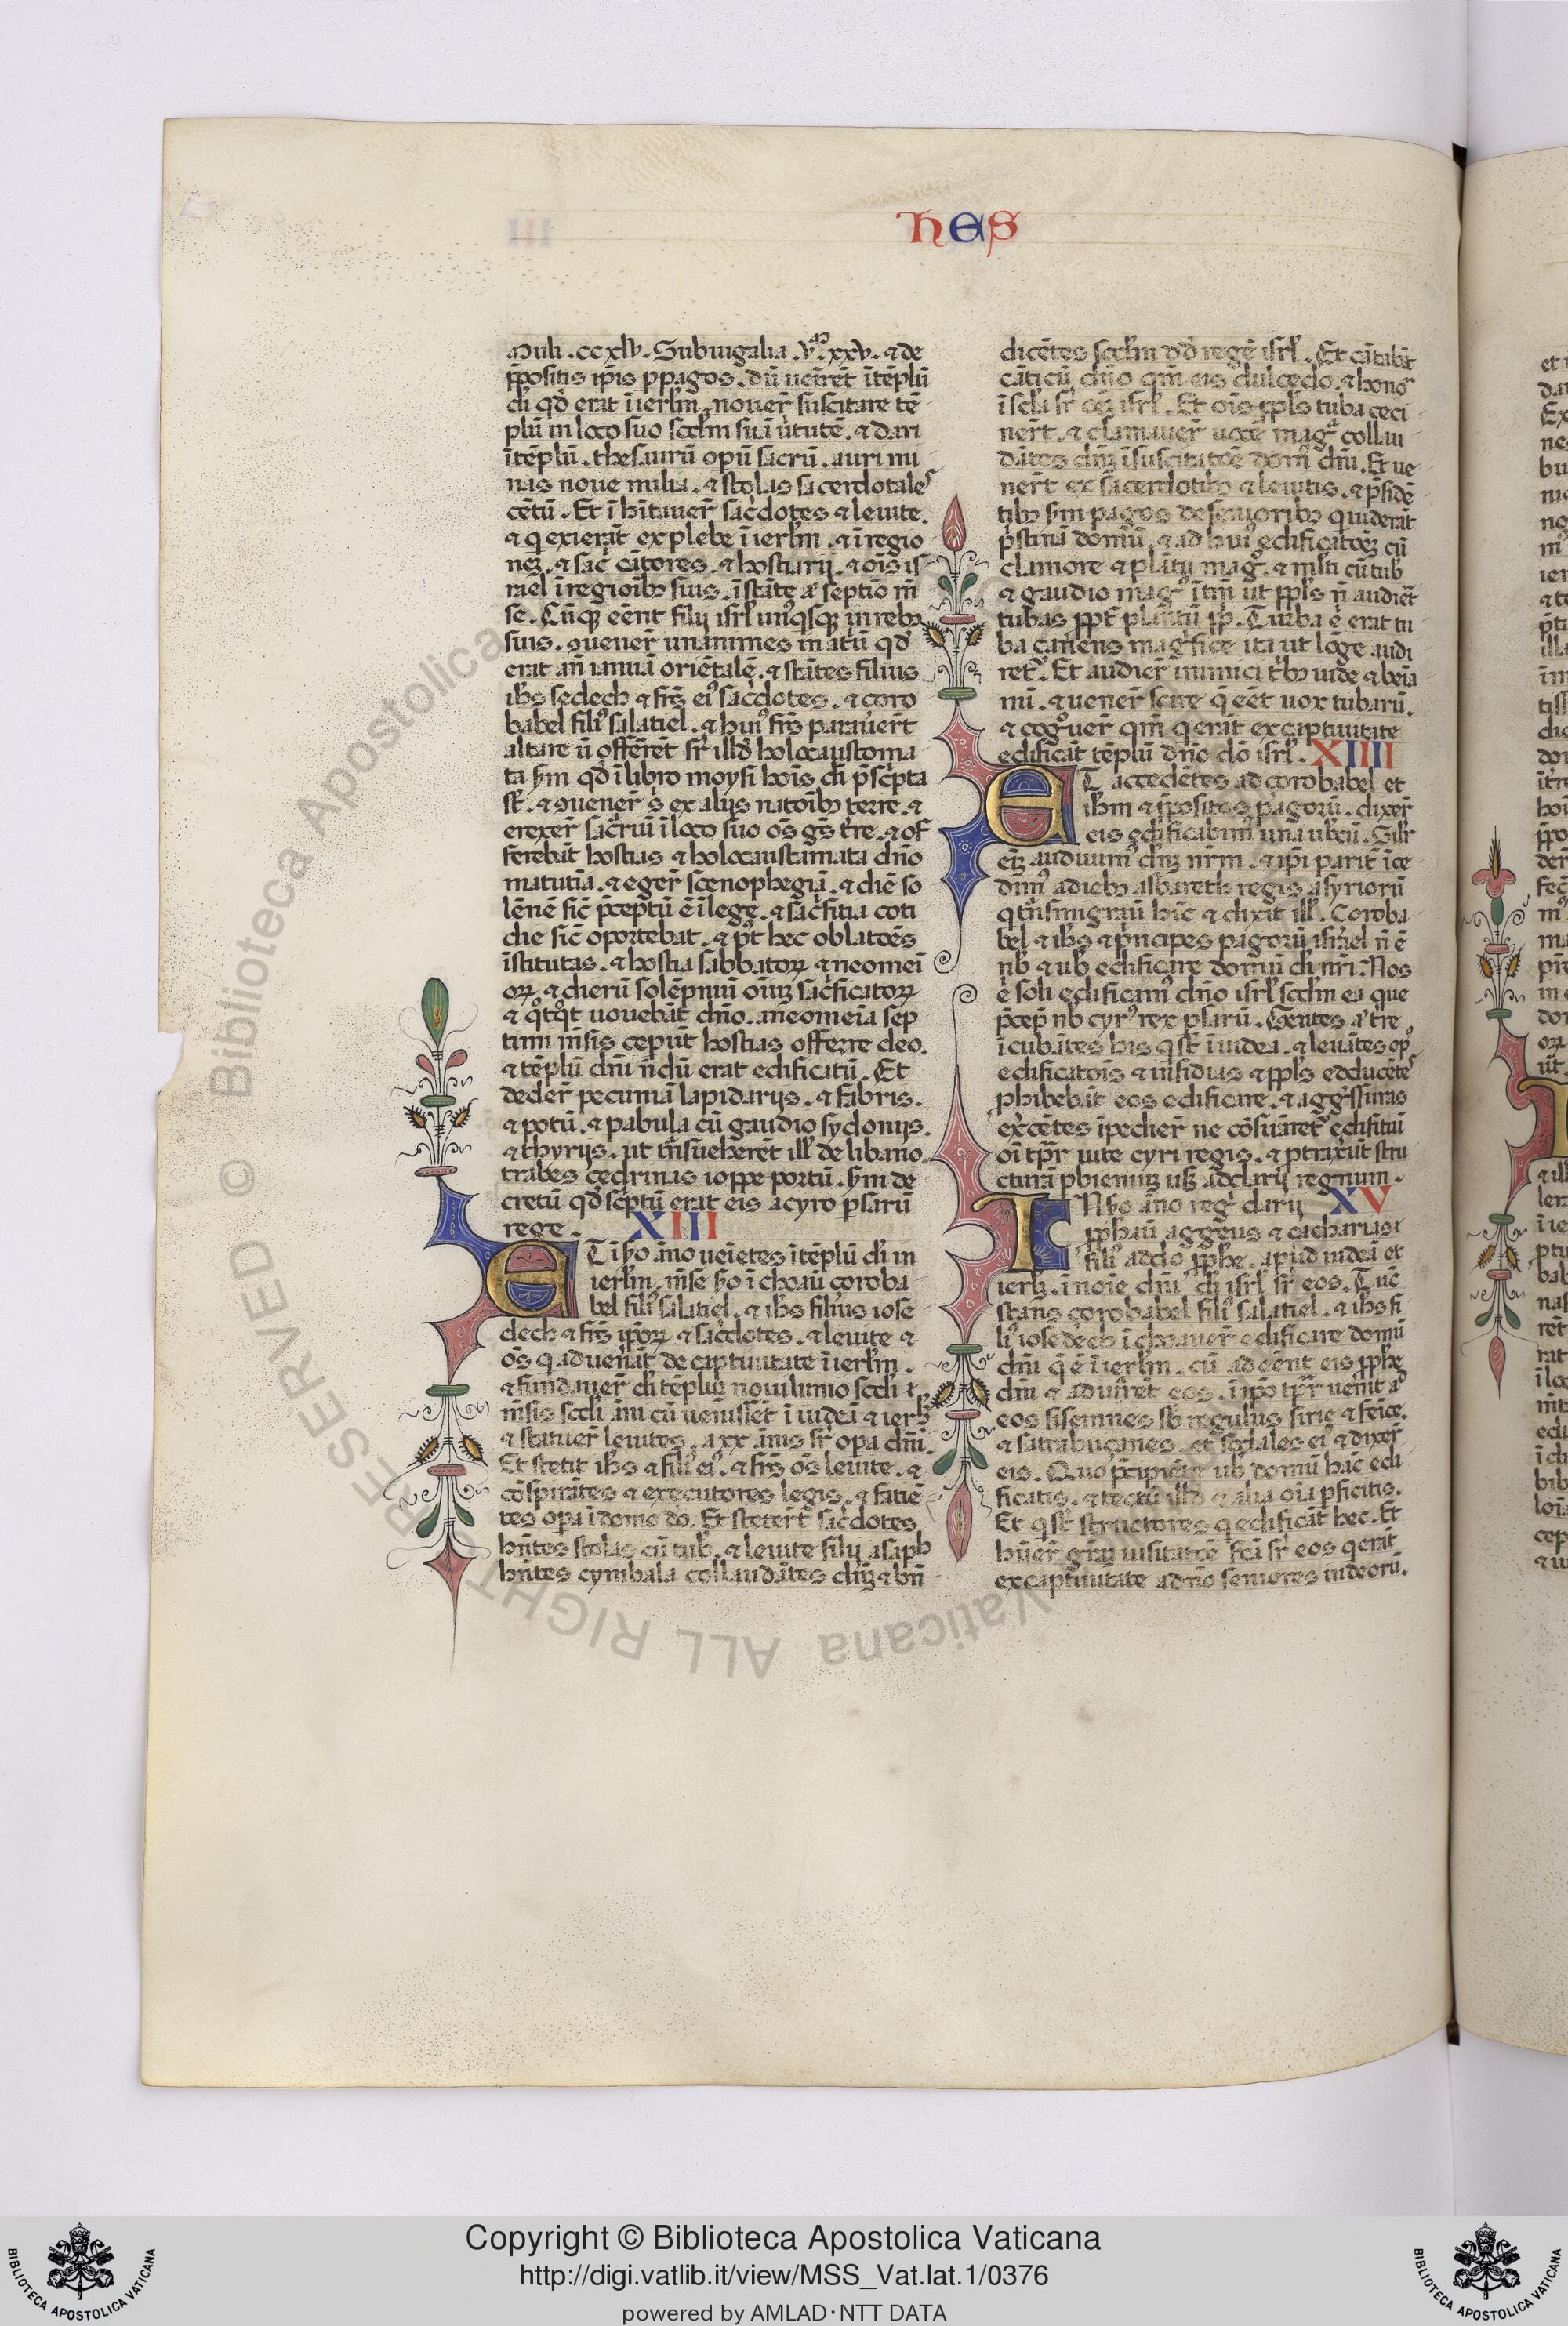 HES
Muli . ccxlv . Subiugalia . v̄. xxv . ⁊ de
p̄positis ip̄is p pagos . dū uēiret ītēplū
di qd̄ erat ī ierl̄m . nouer̄ suscitare tē
plū in loco suo scd̄m suā ūtutē . ⁊ dari
ītēplū . thesaurū opū sacrū . auri mi
nas noue milia . ⁊ stolas sacerdotales
cētū . Et ī hītauer̄ sac̄dotes ⁊ leuite .
⁊ q exierāt ex plebe ī ierl̄m . ⁊ ī regio
nez . ⁊ sac̄ cātores . ⁊ hostiarij . ⁊ oīs is
rael ī regioīb; suis . īstāte a᷒ septīo m̄
se . Cūq; eēnt filij isrl̄ unꝰqsq; in reb;
suis . ꝯuener̄ unanimes in atū qd̄
erat an̄ ianuā oriētalē . ⁊ stātes filius
ih̄s sedech ⁊ fr̄s eiꝰ sac̄dotes . ⁊ coro
babel filiꝰ salatiel . ⁊ huiꝰ fr̄s parauer̄t
altare ū offerēt sr̄ illd̄ holocaustoma
ta s̄m qd̄ ī libro moysi hoīs di p̄sc̄pta
st̄ . ⁊ ꝯuener̄ ꝫ ex alijs natōib; terre . ⁊
erexer̄ sac̄riū ī loco suo oēs gēs t̄re . ⁊ of
ferebāt hostias ⁊ holocaustamata dn̄o
matutīa . ⁊ eger̄ scenophegiā . ⁊ diē so
lēnē sic̄ p̄ceptū ē ī lege . ⁊ sac̄fitia coti
die sic̄ oportebat . ⁊ p᷒t hec oblatōes
īstitutas . ⁊ hostia sabbatoꝝ ⁊ neomei
oꝝ . ⁊ dierū solēpniū oīuz sac̄ficatoꝝ
⁊ qͦtqͦt uouebāt dn̄o . a neomeīa sep
timi m̄sis cepūt hostias offerre deo .
⁊ tēplū dn̄i n̄dū erat edificatū . Et
deder̄ pecuniā lapidarijs . ⁊ fabris .
⁊ potū . ⁊ pabula cū gaudio sydonijs .
⁊ thyrijs . ut trāsueherēt ill̄ de libano
trabes cedrinas ioppe portū . s̄m de
cretū qd̄ sc̄ptū erat eis a cyro p̄sarū
rege . XIII
ET īs̄o āno ueīetes ītēplū di in
ierl̄m . m̄se s̄o ī choaū coroba
bel filiꝰ salatiel . ⁊ ih̄s filius iose
dech ⁊ fr̄s ip̄oꝝ ⁊ sac̄dotes . ⁊ leuite ⁊
oēs q aduenāt de captiuitate ī ierl̄m .
⁊ fundauer̄ di tēpluz nouilunio scd̄i ī
m̄sis scd̄i āni cū uenissēt ī iudeā ⁊ ierl̄z
⁊ statuer̄ leuites . a xx . ānis sr̄ opa dn̄i .
Et stetit ih̄s ⁊ filiꝰ eiꝰ . ⁊ fr̄s oēs leuite . ⁊
cōspirātes ⁊ executores legis . ⁊ fatiē
tes opa ī domo dn̄i . Et steter̄t sac̄dotes
hn̄tes stolas cū tub̄ . ⁊ leuite filij asaph
hn̄tes cymbala collaudātes dn̄z ⁊ bn̄
dicētes scd̄m dd̄ regē isrl̄ . Et cātabāt
cāticū dn̄o qm̄ eis dulcedo . ⁊ honoꝰ
ī scl̄a sr̄ oēz isrl̄ . Et oīs ppl̄s tuba ceci
ner̄t . ⁊ clamauer̄ uoce maḡ collau
dātes dn̄z īsuscitatōe domꝰ dn̄i . Et ue
ner̄t ex sacerdotib; ⁊ leuitis . ⁊ p̄sidē
tib; s̄m pagos de seniorib; qui uiderāt
p̄stinā domū . ⁊ ad huiꝰ edificatōez cū
clamore ⁊ plātu maḡ . ⁊ ml̄ti cū tub̄
⁊ gaudio mag̊ ītm̄ ut ppl̄s n̄ audiēt
tubas ppt̄ plātū ppl̄i . Turba ē erat tu
ba canens mag̊fice ita ut lōge audi
ret᷑ . Et audier̄ inimici trib; iude ⁊ beīa
mī . ⁊ uener̄ scire q̄ eēt uox tubarū .
⁊ cogͦuer̄ qm̄ q erāt ex captiuitate
edificāt tēplū dn̄o do isrl̄ . XIIII
ET accedētes ad corobabel et
ih̄m ⁊ p̄positos pagorū . dixer̄
eis edificabimꝰ una ub̄cū . Silr̄
ēīz audiuimꝰ dn̄z nr̄m . ⁊ ip̄i parit̄ īce
dimꝰ a dieb; asbareth regis asyriorū
q trāsmigrauit hīc ⁊ dixit ill̄ . Coroba
bel ⁊ ih̄s ⁊ p̄ncipes pagorū israel n̄ ē
nb̄ ⁊ ub̄ edificare domū di nr̄i . Nos
ē soli edificamꝰ dn̄o isrl̄ scd̄m ea que
p̄cep̄ nb̄ cyrꝰ rex p̄sarū . Gentes a᷒ t̄re
īcubātes his q st̄ ī iudea . ⁊ leuātes opꝰ
edificatōis ⁊ insidias ⁊ ppl̄s educētes
phibebāt eos edificare . ⁊ aggr̄ssuras
exc̄cētes īpedier̄ ne cōsumaret᷑ edifitiū
oī tpr̄ uite cyri regis . ⁊ ptraxūt stru
cturā p bieniuz usq; ad darij regnum .
IN s̄o āno reḡ darij XV
pphau aggeus ⁊ cacharias
filiꝰ addo pphe . apud iudeā et
ierl̄z . ī noīe dn̄i di isrl̄ sr̄ eos . Tūc
stans corobabel filiꝰ salatiel . ⁊ ih̄s fi
liꝰ iosedech ī choauer̄ edificare domū
dn̄i q̄ ē ī ierl̄m . cū adeēnt eis pphe
dn̄i ⁊ adiuuaret eos . ī ip̄o tpr̄ uenit ad
eos sisennes sb̄ regulus sirie ⁊ feice .
⁊ satrabuçanes . et sodales eiꝰ ⁊ dixer̄
eis . Quo p̄cipiēte ub̄ domū hāc edi
ficatis . ⁊ tectū illd̄ ⁊ alia oīa pficitis .
Et q st̄ structores q edificāt hec . Et
hūer̄ gr̄az uisitatōe fc̄a sr̄ eos q erāt
ex captiuitate a dn̄o seniores iudeorū .
Copyright © Biblioteca Apostolica Vaticana
http://digi.vatlib.it/view/MSS_Vat.lat.1/0376
powered by AMLAD·NTT DATA
BIBLIOTECA APOSTOLICA VATICANA
BIBLIOTECA APOSTOLICA VATICANA
© Biblioteca Apostolica Vaticana ALL RIGHT RESERVED